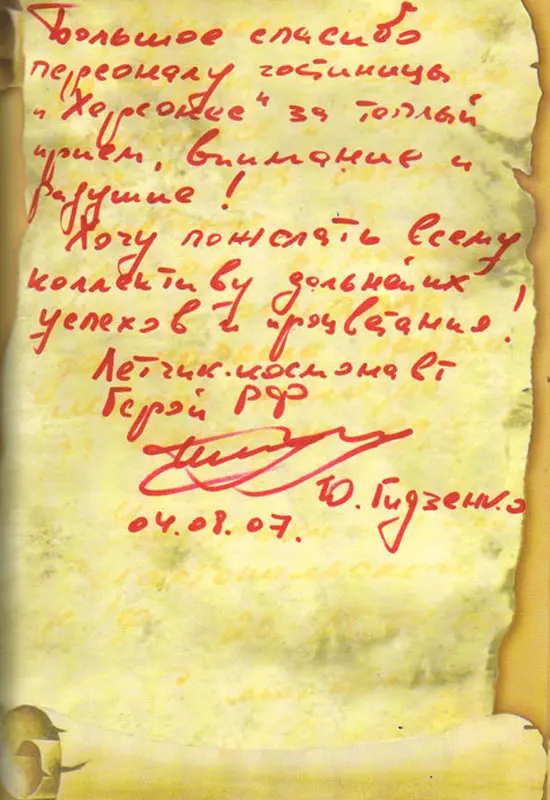 Большое спасибо
персоналу гостиницы
"Херсонес" за теплый
прием, внимание и
радушие!
Хочу пожелать всему
коллективу дальнейших
успехов и процветания!
Летчик-космонавт
Герой РФ
Ю. Гидзенко
04.08.07.